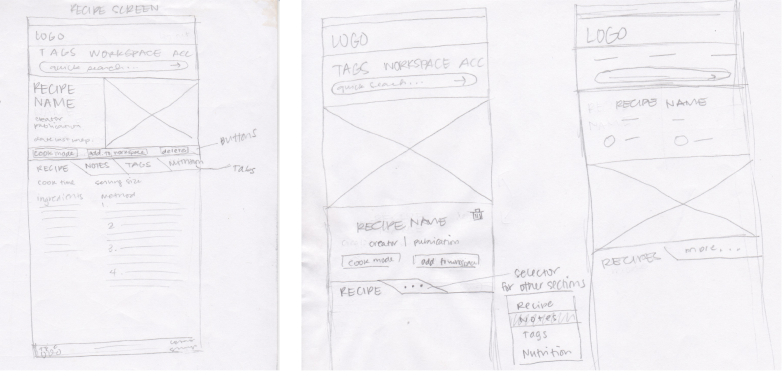 RECIPE SCREEN
LOGO
TAGS WORKSPACE ACC
quick search... →
RECIPE NAME
creator
publication
cook mode add to workspace delete
Buttons
RECIPE NOTES TAGS NUTRITION
Tags
cook time serving size
ingredients method
1
2
3.
4.
LOGO
TAGS WORKSPACE ACC
quick search... →
RECIPE NAME
creator | publication
cook mode add to workspace
RECIPE ...
selector
for other sections
Recipe
Notes
Tags
Nutrition
LOGO
RECIPE NAME
RECIPES more...